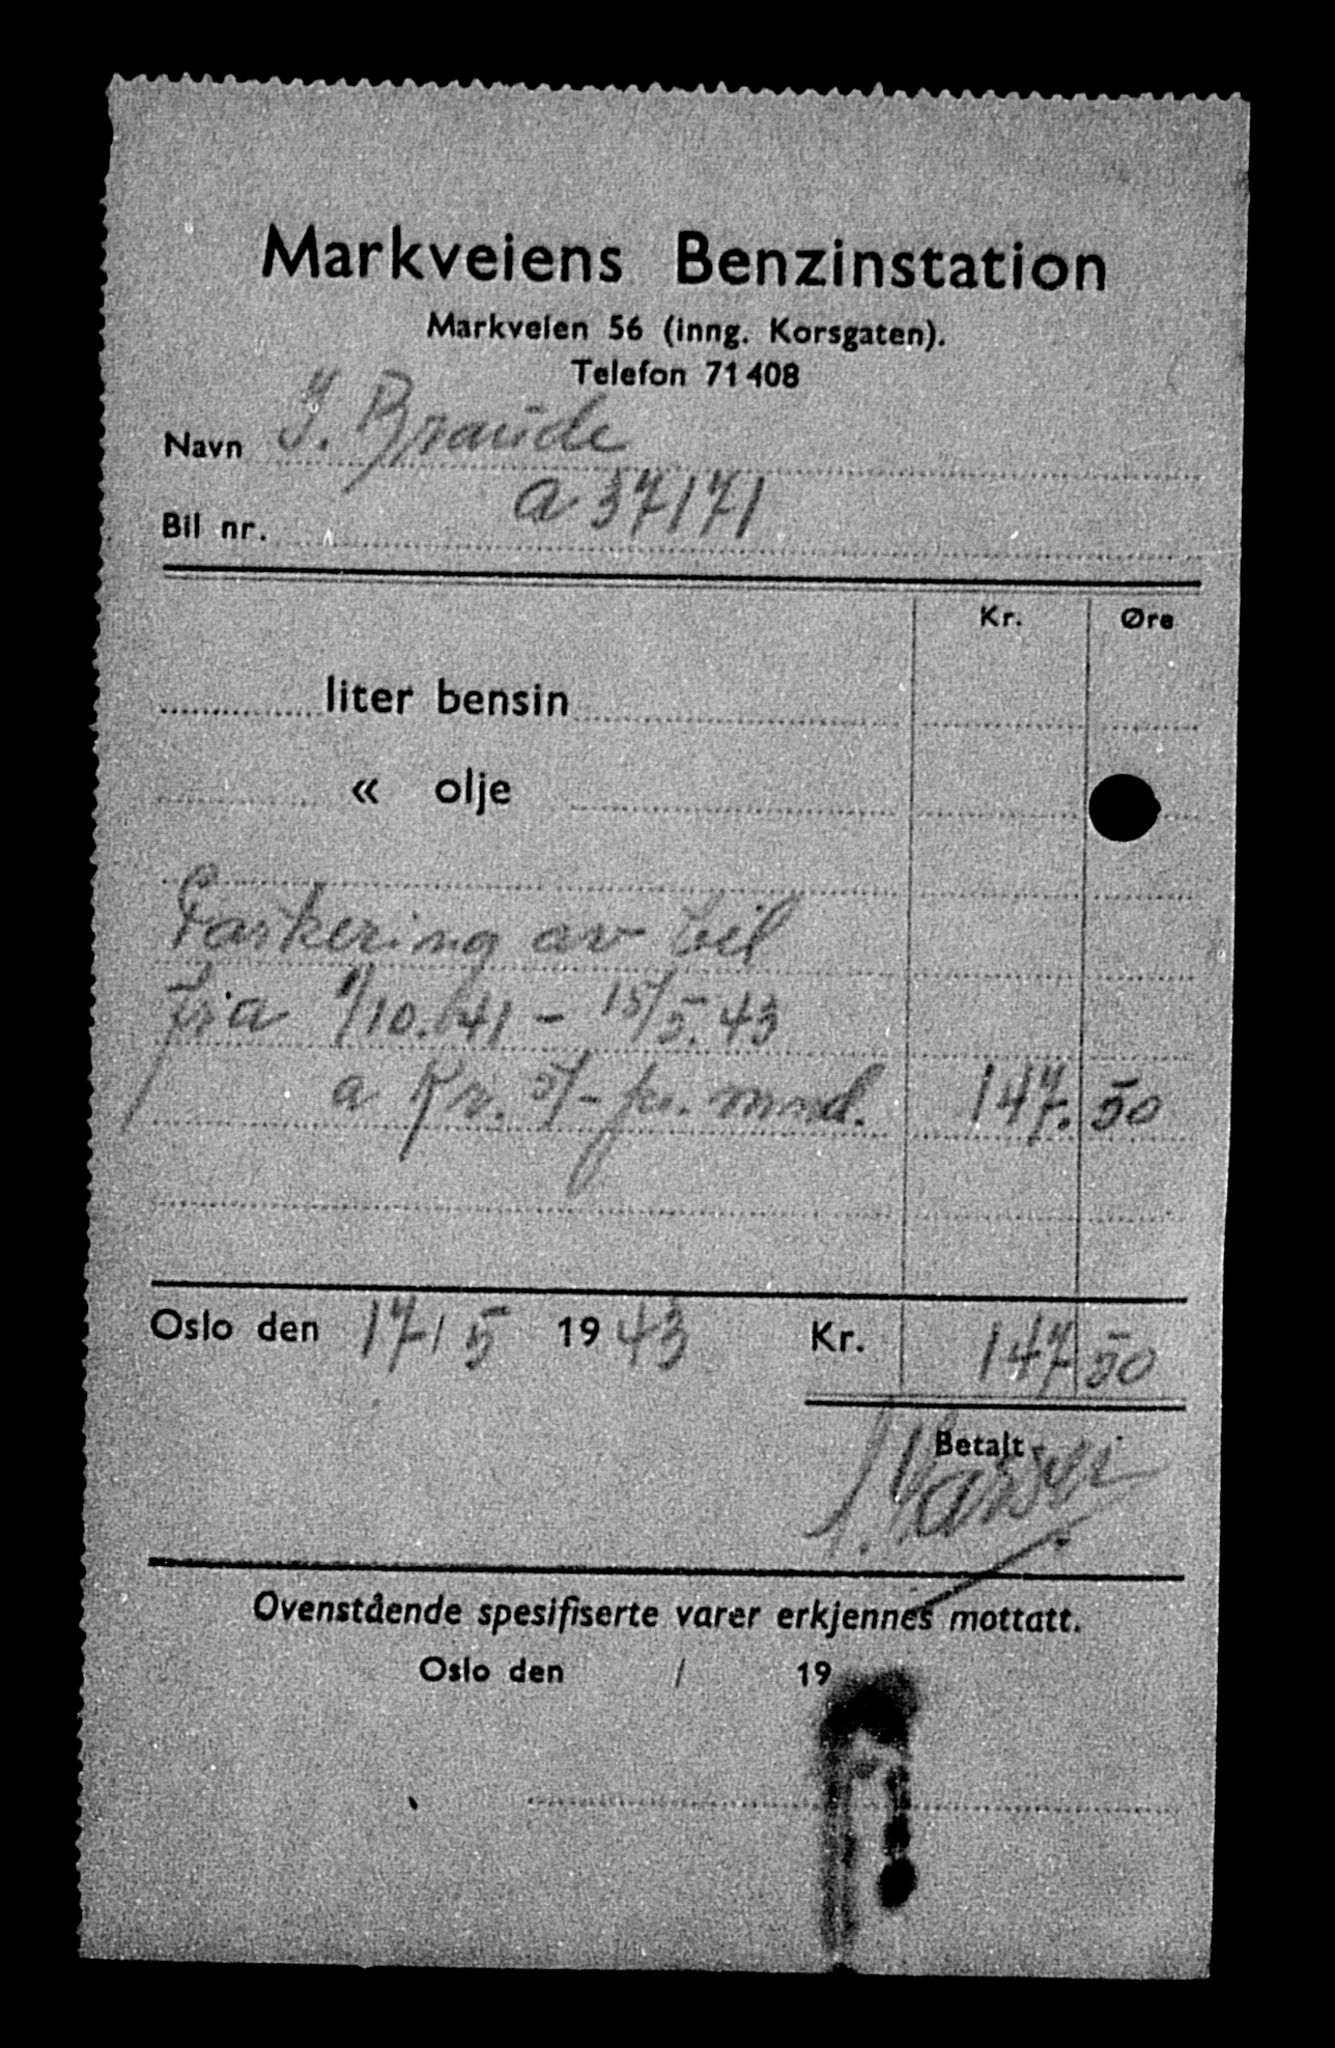 Markveiens Benzinstation
Markveien 56 (inng. Korsgaten).
Telefon 71408
Navn J. Braude
Bil nr. A 37171
Kr. Øre
liter bensin
« olje
Parkering av bil
fra 1/10. 41 - 15/5. 43
a Kr. 5/- pr. mnd. 147. 50
Oslo den 17/5 1943 Kr. 147 50
Betalt
Ovenstående spesifiserte varer erkjennes mottatt.
Oslo den / 19